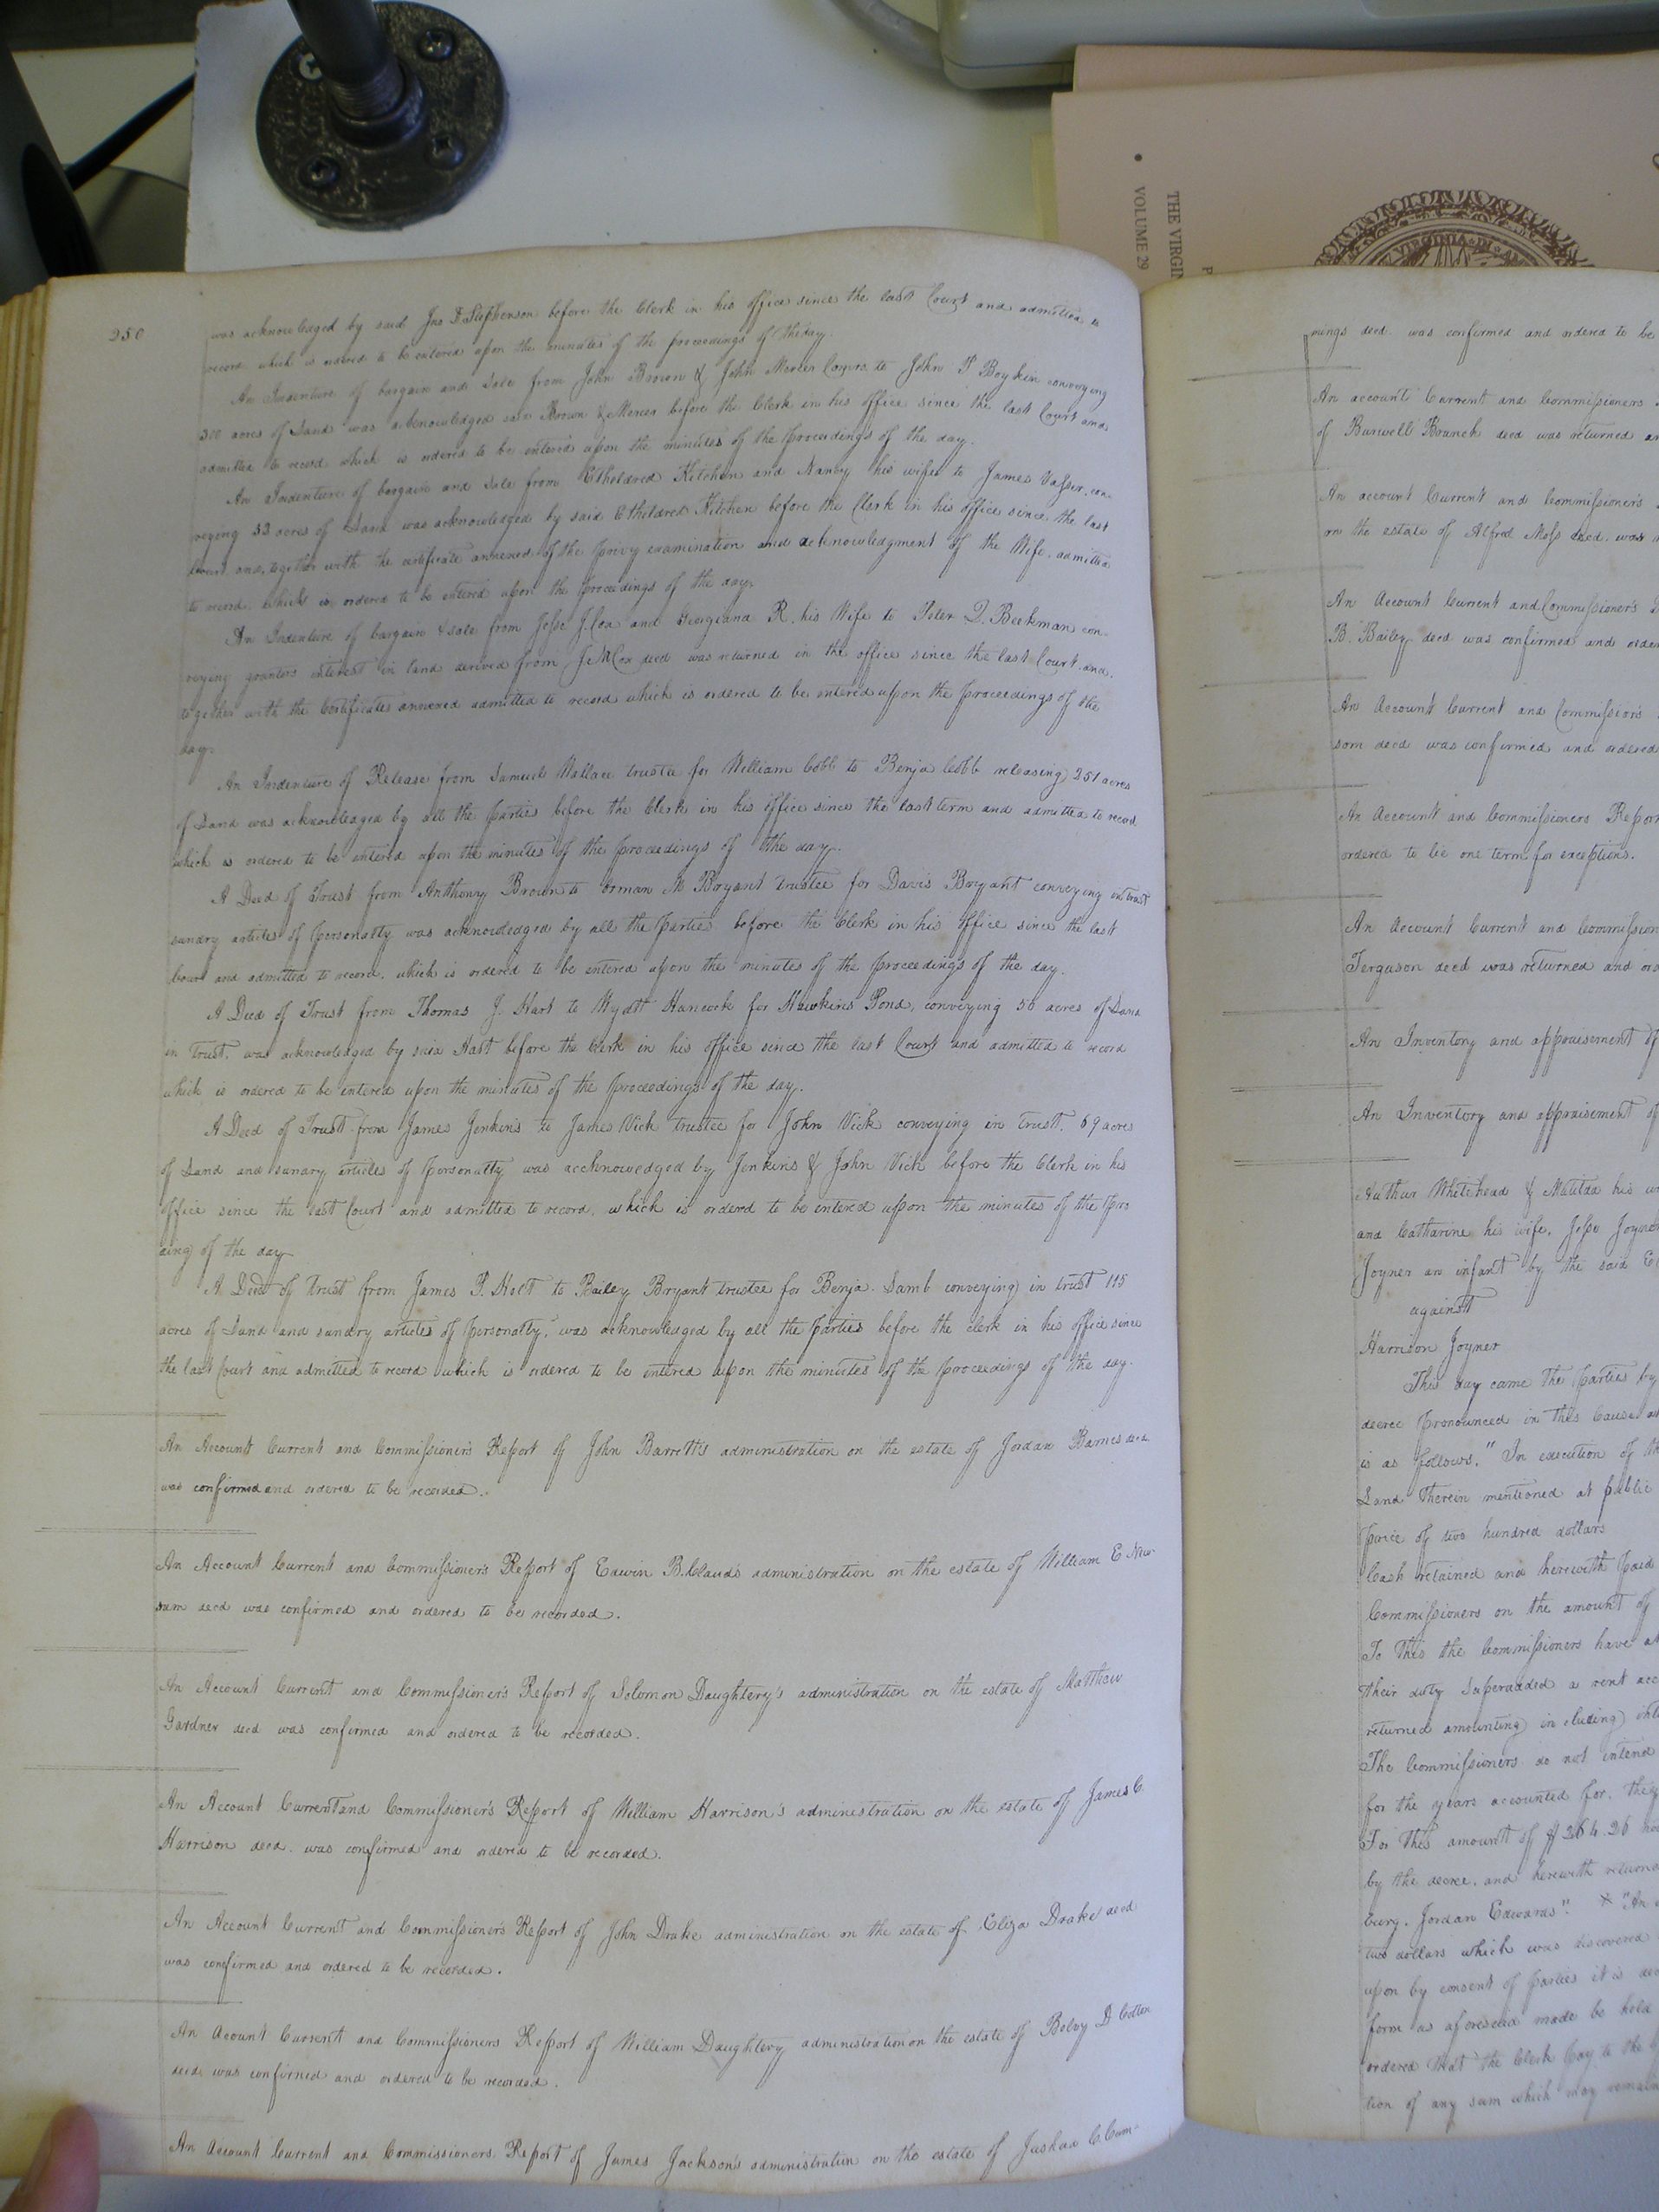 THE VIRGI
VOLUME 29
VIRGINIA
250
was acknowledged by said Jno D Stephenson before the Clerk in his office since the last Court and admitted to
record which is ordered to be entered upon the minutes of the proceedings of the day.
An Indenture of bargain and sale from John Brown & John Mercer Comrs. to John T Boykin conveying
300 acres of Land was acknowledged said Brown & Mercer before the Clerk in his office since the last Court and
admitted to record which is ordered to be entered upon the minutes of the proceedings of the day.
An Indenture of bargain and sale from Etheldred Kitchen and Nancy his wife to James Vasser, con-
veying 53 acres of Land was acknowledged by said Etheldred Kitchen before the Clerk in his office since the last
Court and, together with the certificate annexed of the privy examination and acknowledgment of the Wife, admitted
to record which is ordered to be entered upon the proceedings of the day.
An Indenture of bargain & sale from Jesse J. Cox and Georgiana R. his Wife to Peter Q. Beekman con-
veying grantors interest in land derived from J. M Cox deed was returned in the office since the last Court and,
together with the Certificates annexed admitted to record which is ordered to be entered upon the proceedings of the
day.
An Indenture of Release from Samuel Wallace trustee for William Cobb to Benja Cobb releasing 251 acres
of Land was acknowledged by all the parties before the Clerk in his office since the last term and admitted to record
which is ordered to be entered upon the minutes of the proceedings of the day.
A Deed of Trust from Anthony Brown to Orman M Bryant trustee for Davis Bryant conveying in trust
sundry articles of personalty was acknowledged by all the parties before the Clerk in his office since the last
Court and admitted to record, which is ordered to be entered upon the minutes of the proceedings of the day.
A Deed of Trust from Thomas J. Hart to Wyatt Hancock for Hawkins Pond, conveying 50 acres of Land
in trust, was acknowledged by said Hart before the Clerk in his office since the last Court and admitted to record
which is ordered to be entered upon the minutes of the proceedings of the day.
A Deed of Trust from James Jenkins to James Vick trustee for John Vick conveying in trust, 69 acres
of Land and sundry articles of personalty was accknowedged by Jenkins & John Vick before the Clerk in his
office since the last Court and admitted to record, which is ordered to be entered upon the minutes of the pro
ceing of the day
A Deed of trust from James P. Holt to Bailey Bryant trustee for Benja. Lamb conveying in trust 115
acres of Land and sundry articles of personalty, was acknowledged by all the parties before the clerk in his office since
the last Court and admitted to record which is ordered to be entered upon the minutes of the proceedings of the day.
An Account Current and Commissioner's Report of John Barrett's administration on the estate of Jordan Barnes decd.
was confirmed and ordered to be recorded.
An Account Current and Commissioner's Report of Edwin B. Claud's administration on the estate of William E New-
sum decd was confirmed and ordered to be recorded.
An Account Current and Commissioner's Report of Solomon Daughtery's administration on the estate of Matthew
Gardner decd was confirmed and ordered to be recorded.
An Account Current and Commissioner's Report of William Harrison's administration on the estate of James C.
Harrison decd. was confirmed and ordered to be recorded.
An Account Current and Commissioner's Report of John Drake administration on the estate of Eliza Drake decd
was confirmed and ordered to be recorded.
An Acount Current and Commissioners Report of William Daughtery administration on the estate of Bolvy D Cotton
decd. was confirmed and ordered to be recorded.
An Account Current and Commissioners Report of James Jackson's administration on the estate of C. Cum-
mings decd. was confirmed and ordered to be
An account Current and Commissioners
of Burwell Branch decd was returned
An account Current and Commissioner's
on the estate of Alfred Moss decd. was
An Account Current and Commissioner's
B. Bailey decd was confirmed and
An Account Current and Commission's
som decd was confirmed and ordered
An Account and Commissioners Report
ordered to lie one term for exceptions.
An Account Current and
Ferguson decd was returned and
An Inventory and appraisement of
An Inventory and appraisement of
Arthur Whitehead & Matilda his
and Catharine his wife, Jesse Joyner
Joyner an infant by the said
against
Harrison Joyner
This day came the parties by
decree pronounced in this Cause
is as follows. "In execution of
Land therein mentioned at public
price of two hundred dollars
Cash retained and herewith paid
Commissioners on the amount of
To this the Commissioners have
their duty superadded a rent
returned amounting including
The Commissioners do not intend
for the years accounted for, they
For this amount of $264.26
by the decree, and herewith
Jordan Edwards". X "An
two dollars which was discovered
upon by consent of parties it is
form as aforesaid made be held
ordered that the Clerk pay to the
tion of any sum which may remain